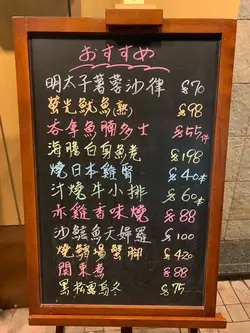 おすすめ
明太子薯蓉沙律 $70
螢光魷魚(熟) $98
吞拿魚腩多士 $55/件
海膽白身魚煮 $198
燒日本雞腎 $40/本
汁燒牛小排 $60/本
赤雞香味燒 $88
沙鯭魚天婦羅 $100
燒鱈場蟹腳 $420
関東煮 $88
黒松露烏冬 $75